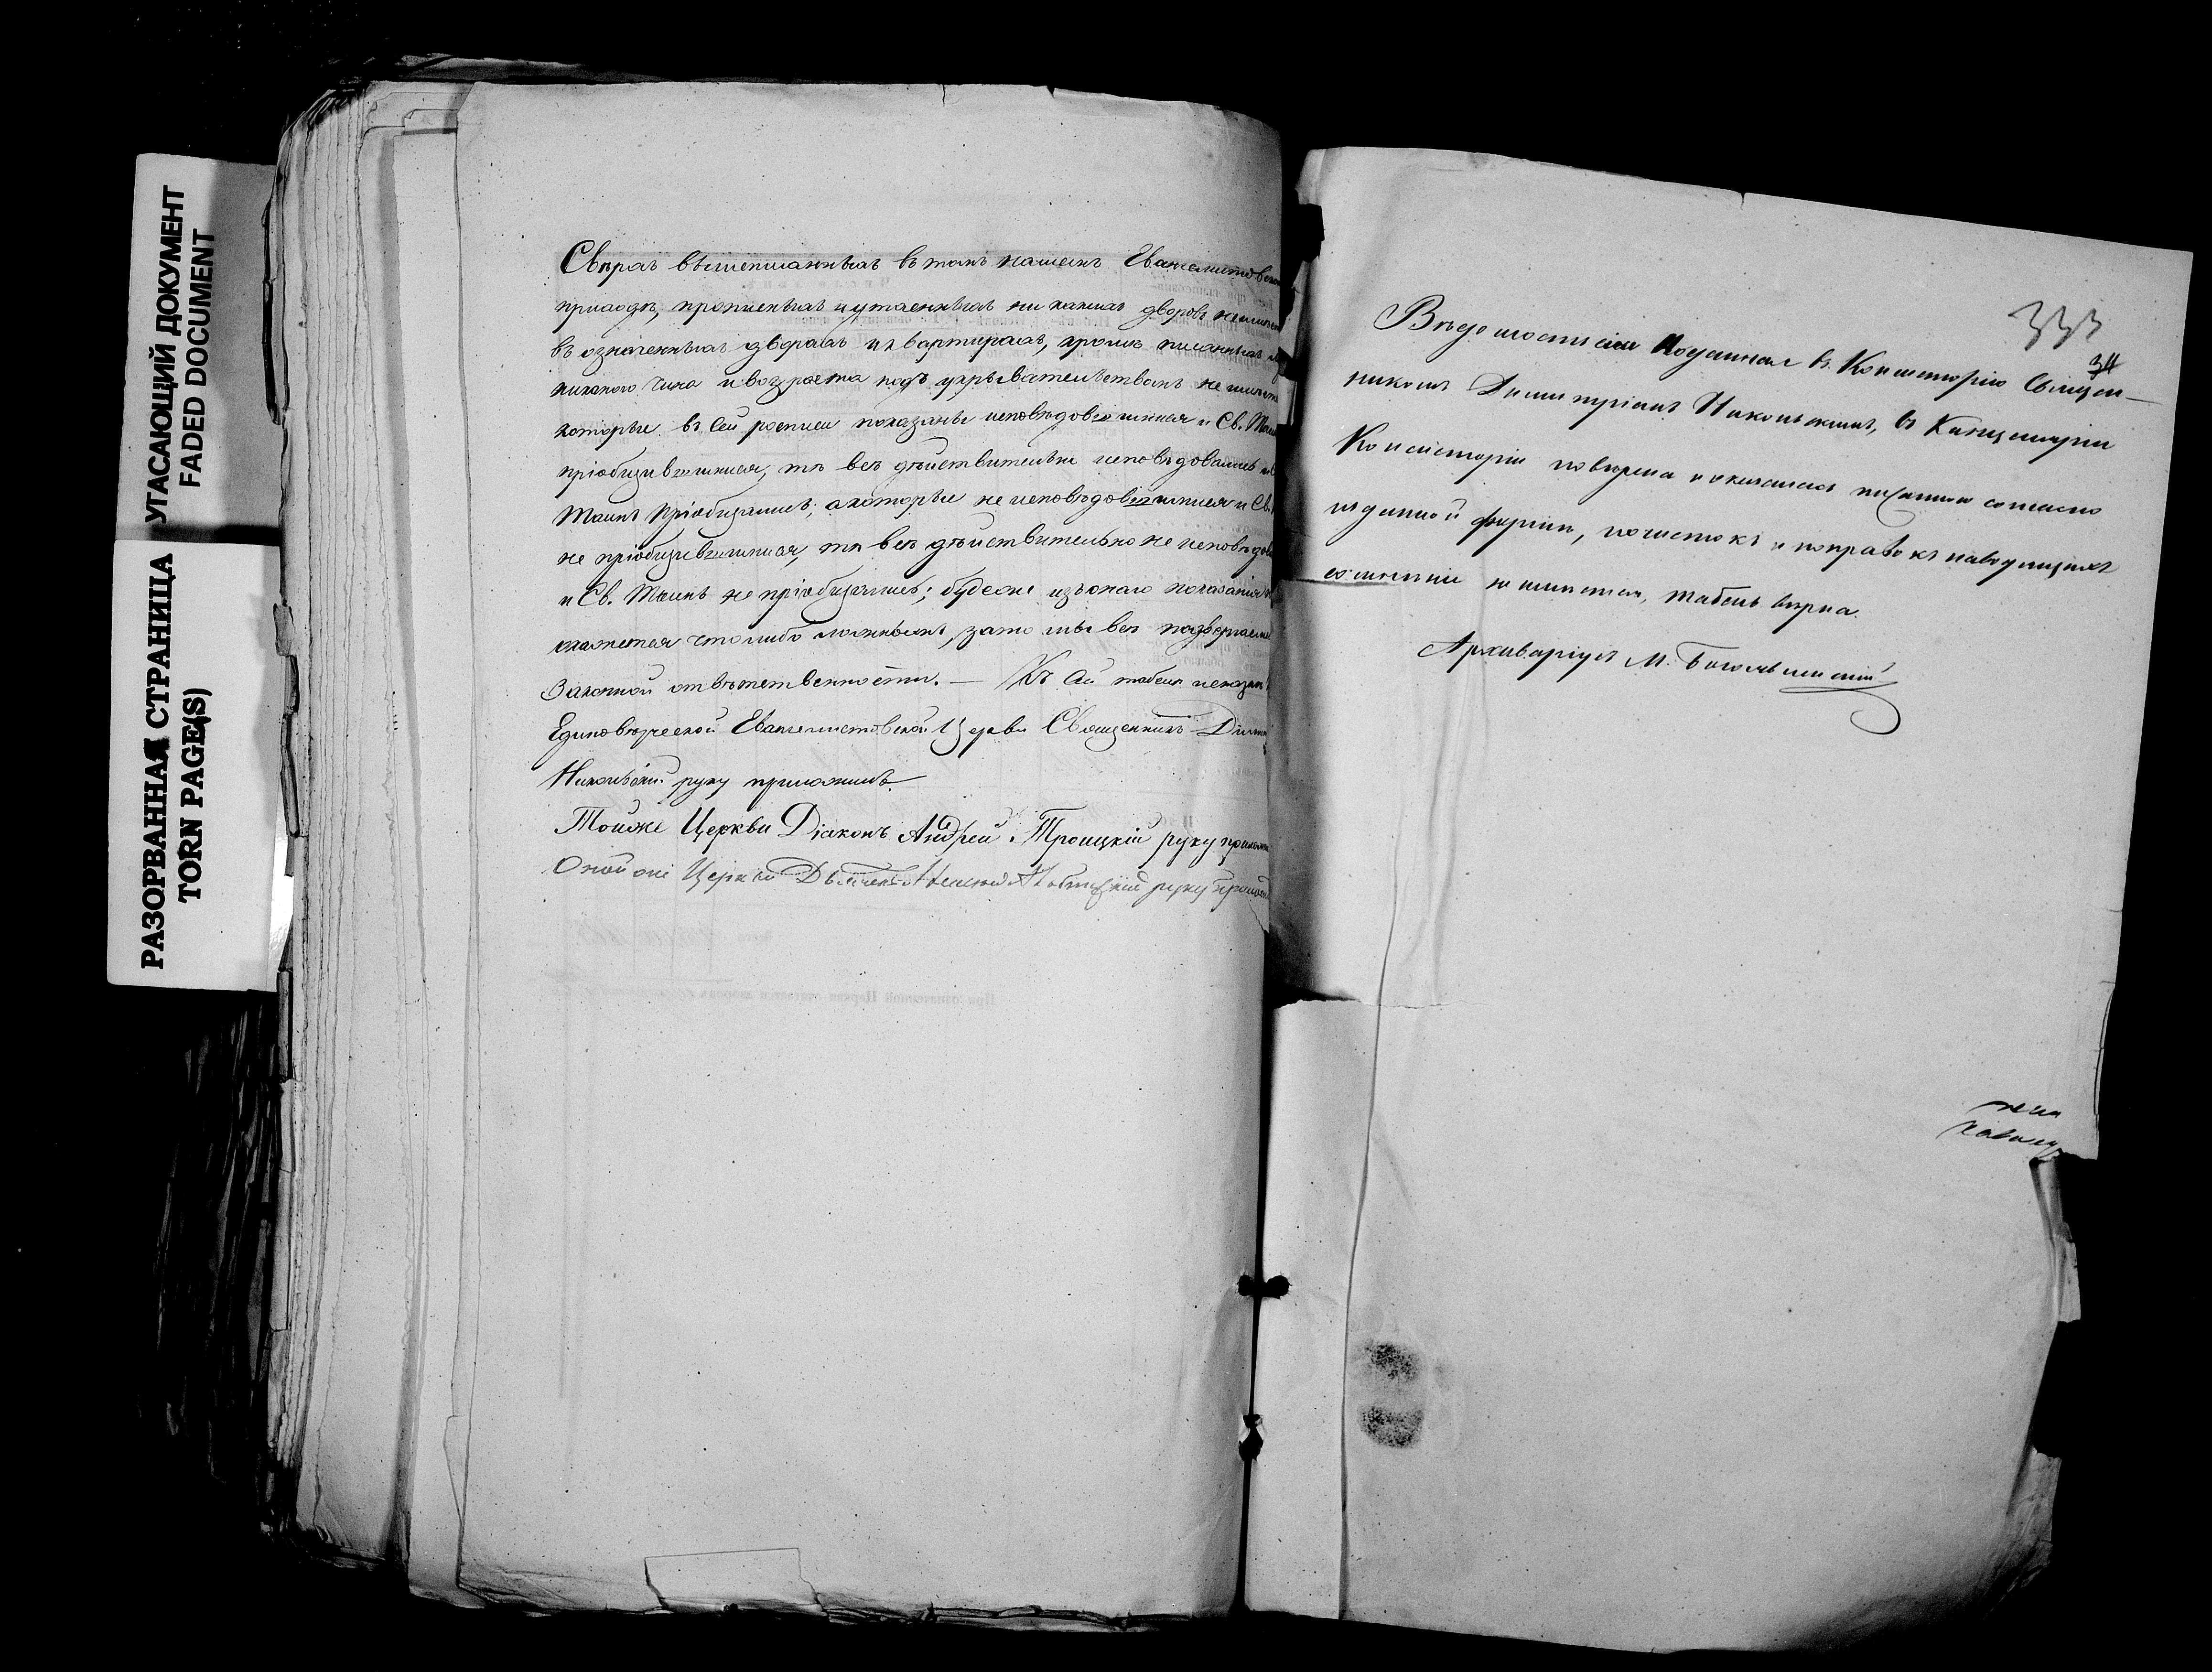 УГАСАЮЩИЙ ДОКУМЕНТ
FADED DOCUMENT
РАЗОРВАННАЯ СТРАНИЦА
TORN PAGE(S)
Сверхъ вышеписанныхъ въ томъ нашемъ Евангелистовско
приходѣ, прописныхъ и утаенныхъ ни какихъ дворовъ неимѣет
въ означенныхъ дворахъ и квартирахъ, кромѣ писанныхъ
никакого чина и возраста подъ укрывательствомъ не имѣет
которые въ сей росписи показаны исповѣдовавшимися и Св. Таин
пріобщившимися, тѣ всѣ дѣйствительно исповѣдовались и С
Таинъ пріобщались; а которые не исповѣдовавшимися и Св.
не пріобщившимися, тѣ всѣ дѣйствительно не исповѣдов
и Св. Таинъ не пріобщались; буде же изъ онаго показанія
окажется что либо ложнымъ, за то мы всѣ подвергаемся
Законной отвѣтственности. — Къ сей табели
Единовѣрческой Евангелистовской Церкви Священникъ Дими
Никольскій руку приложилъ.
Тойже Церкви Діаконъ Андрей Троицкій руку прилож
Оной же Церкви Дьячекъ руку прилож
333
34
Вѣдомость сія поданная въ Консисторію Священ-
никомъ Димитріемъ Никольскимъ, въ Канцеляріи
Консисторіи повѣрена и оказалась писанною согласно
изданной формы, почистокъ и поправокъ наводящихъ
сомнѣніе неимѣется, табель вѣрна.
Архиваріусъ М. Богоявленскій